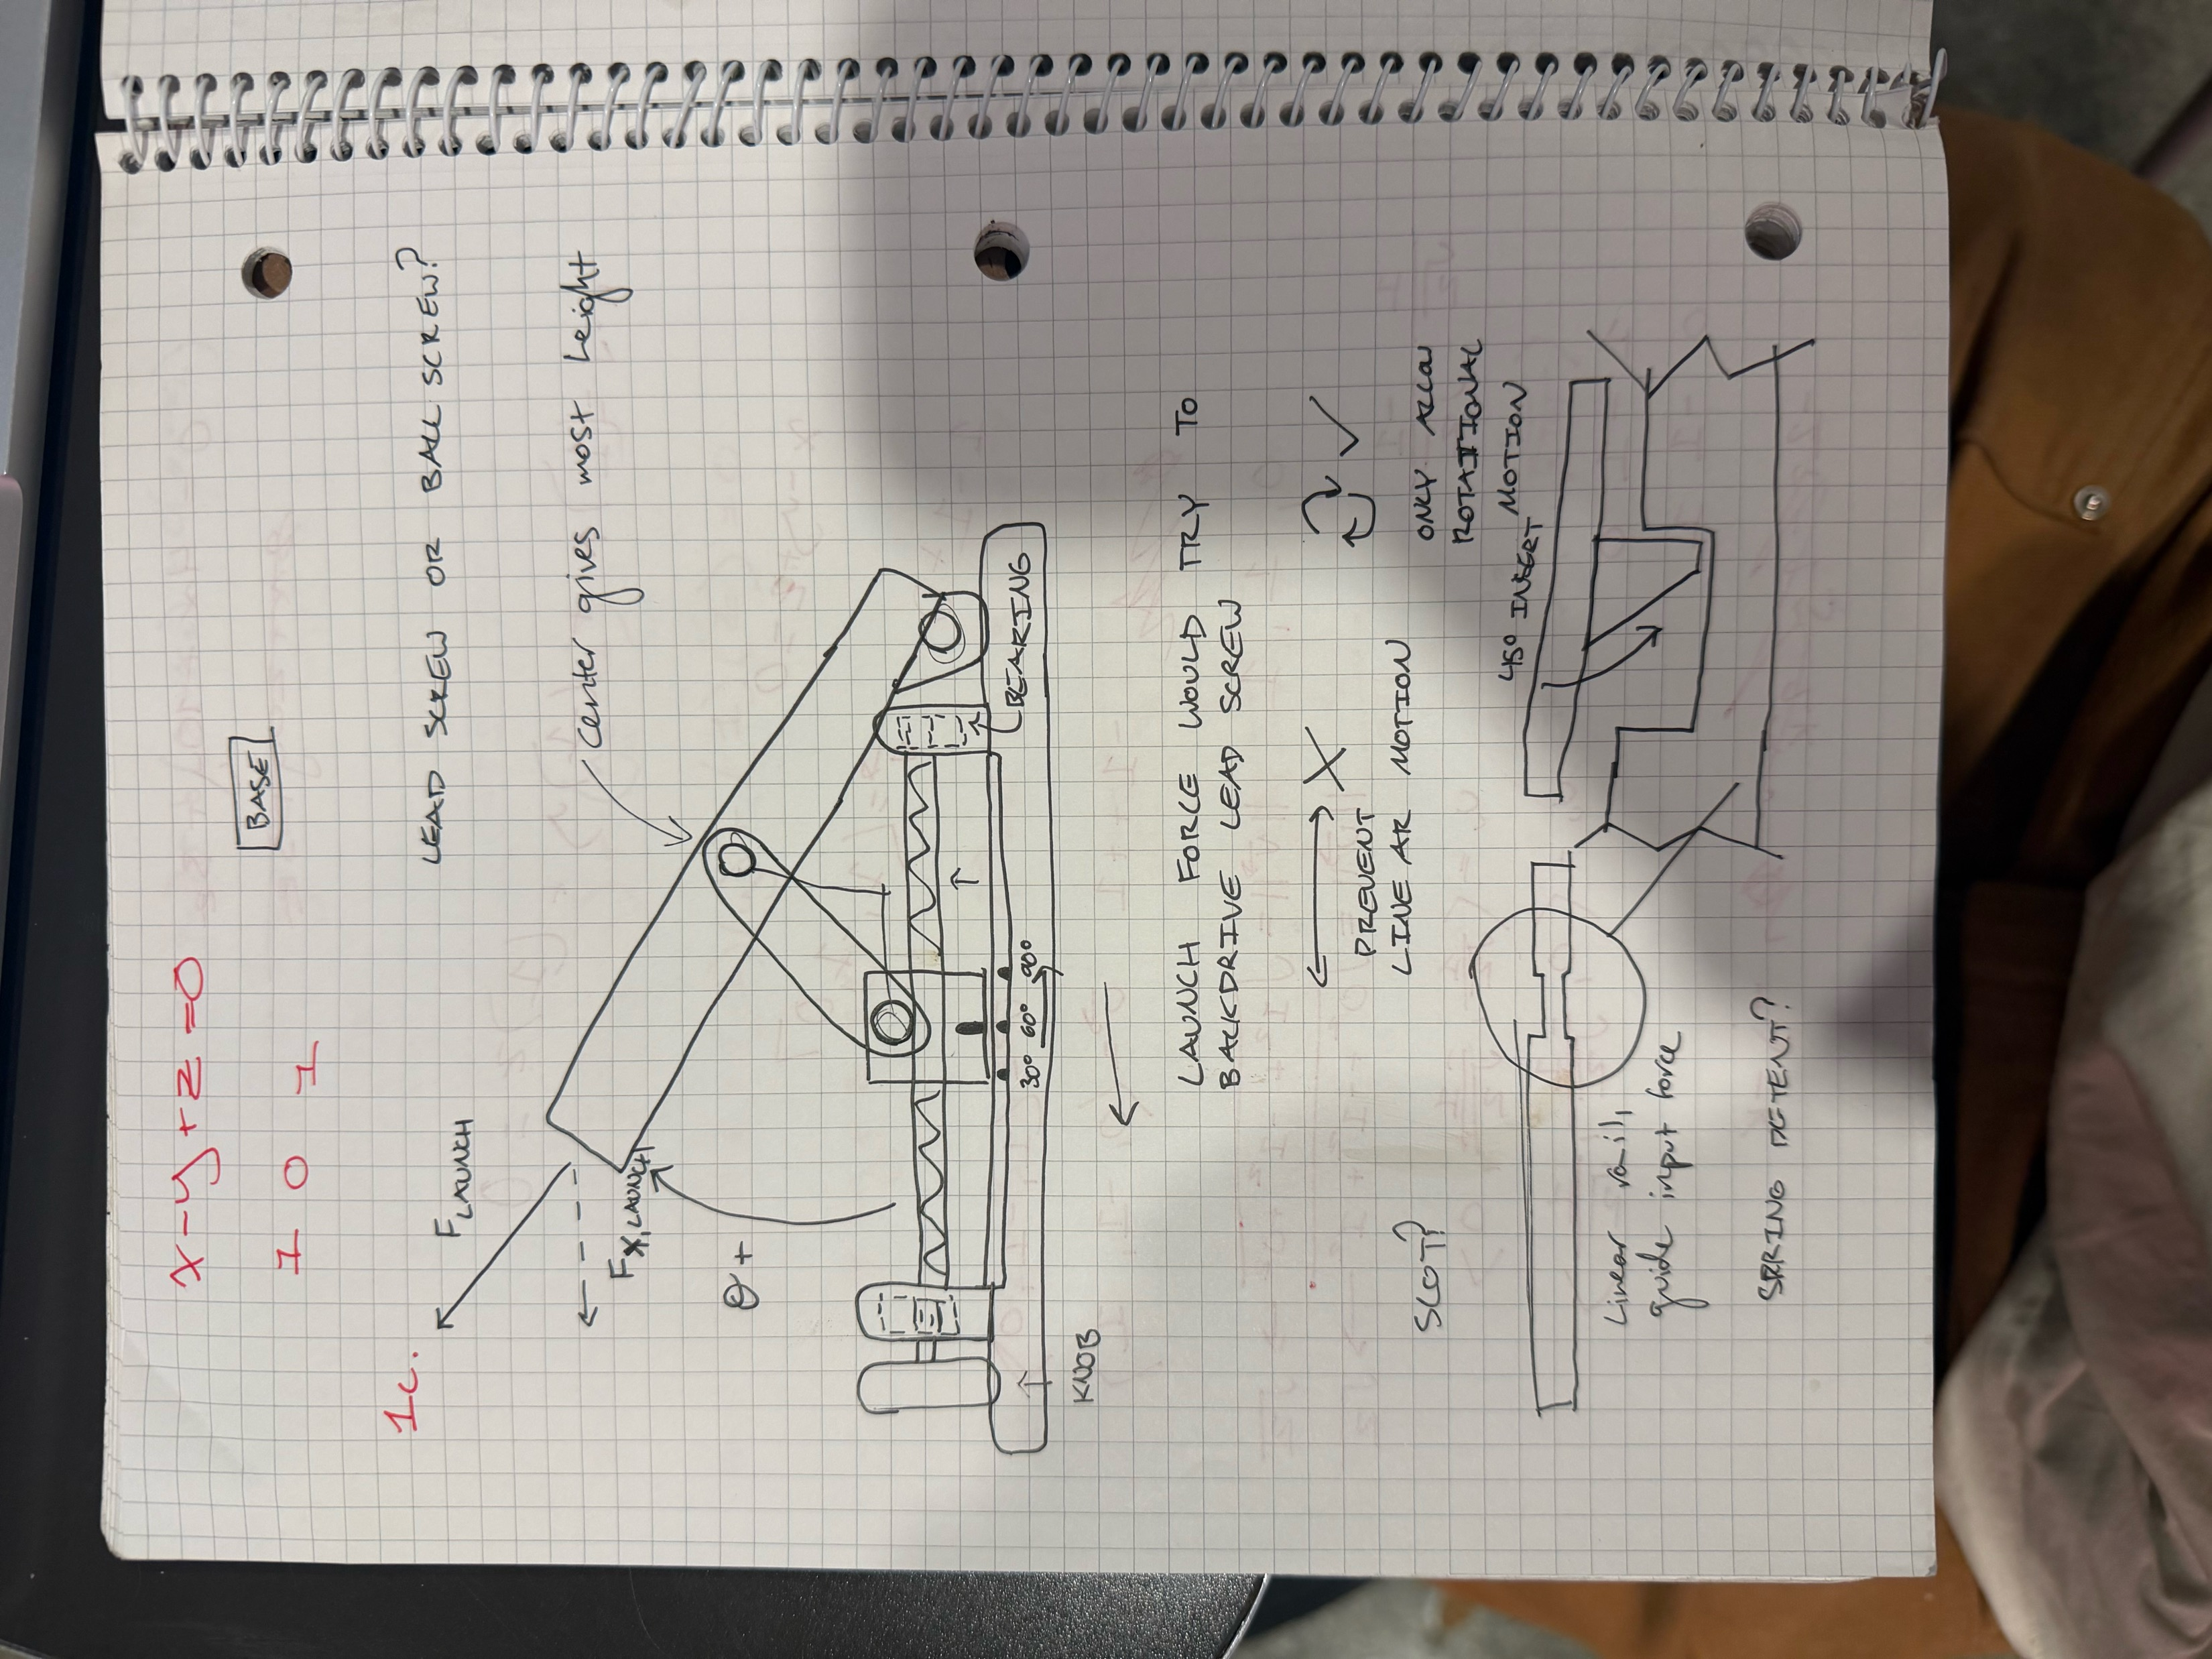 x-y+z=0
1 0 1
1c.
BASE
LEAD SCREW OR BALL SCREW?
F LAUNCH
Center gives most height
F X, LAUNCH
θ+
BEARING
30° 60° 90°
KNOB
LAUNCH FORCE WOULD TRY TO
BACKDRIVE LEAD SCREW
X
✓
PREVENT
LINEAR MOTION
ONLY ALLOW
ROTATIONAL
MOTION
SLOT?
45° INSERT
Linear rail,
guide input force
SPRING DETENT?